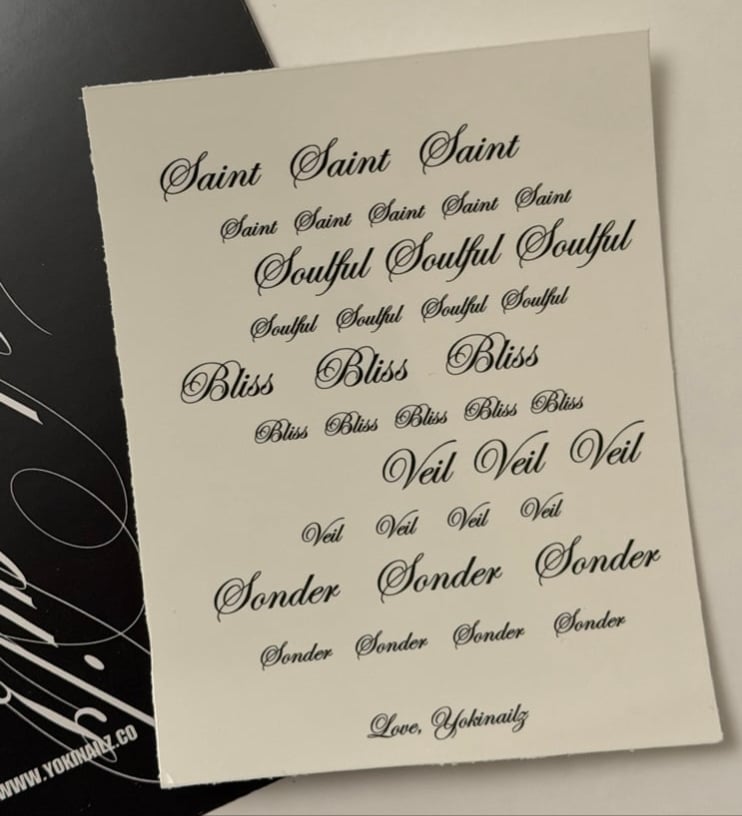 Saint Saint Saint
Saint Saint Saint Saint Saint
Soulful Soulful Soulful
Soulful Soulful Soulful Soulful
Bliss Bliss Bliss
Bliss Bliss Bliss Bliss Bliss
Veil Veil Veil
Veil Veil Veil Veil
Sonder Sonder Sonder
Sonder Sonder Sonder Sonder
Love, Yokinailz
WWW.YOKINAILZ.CO